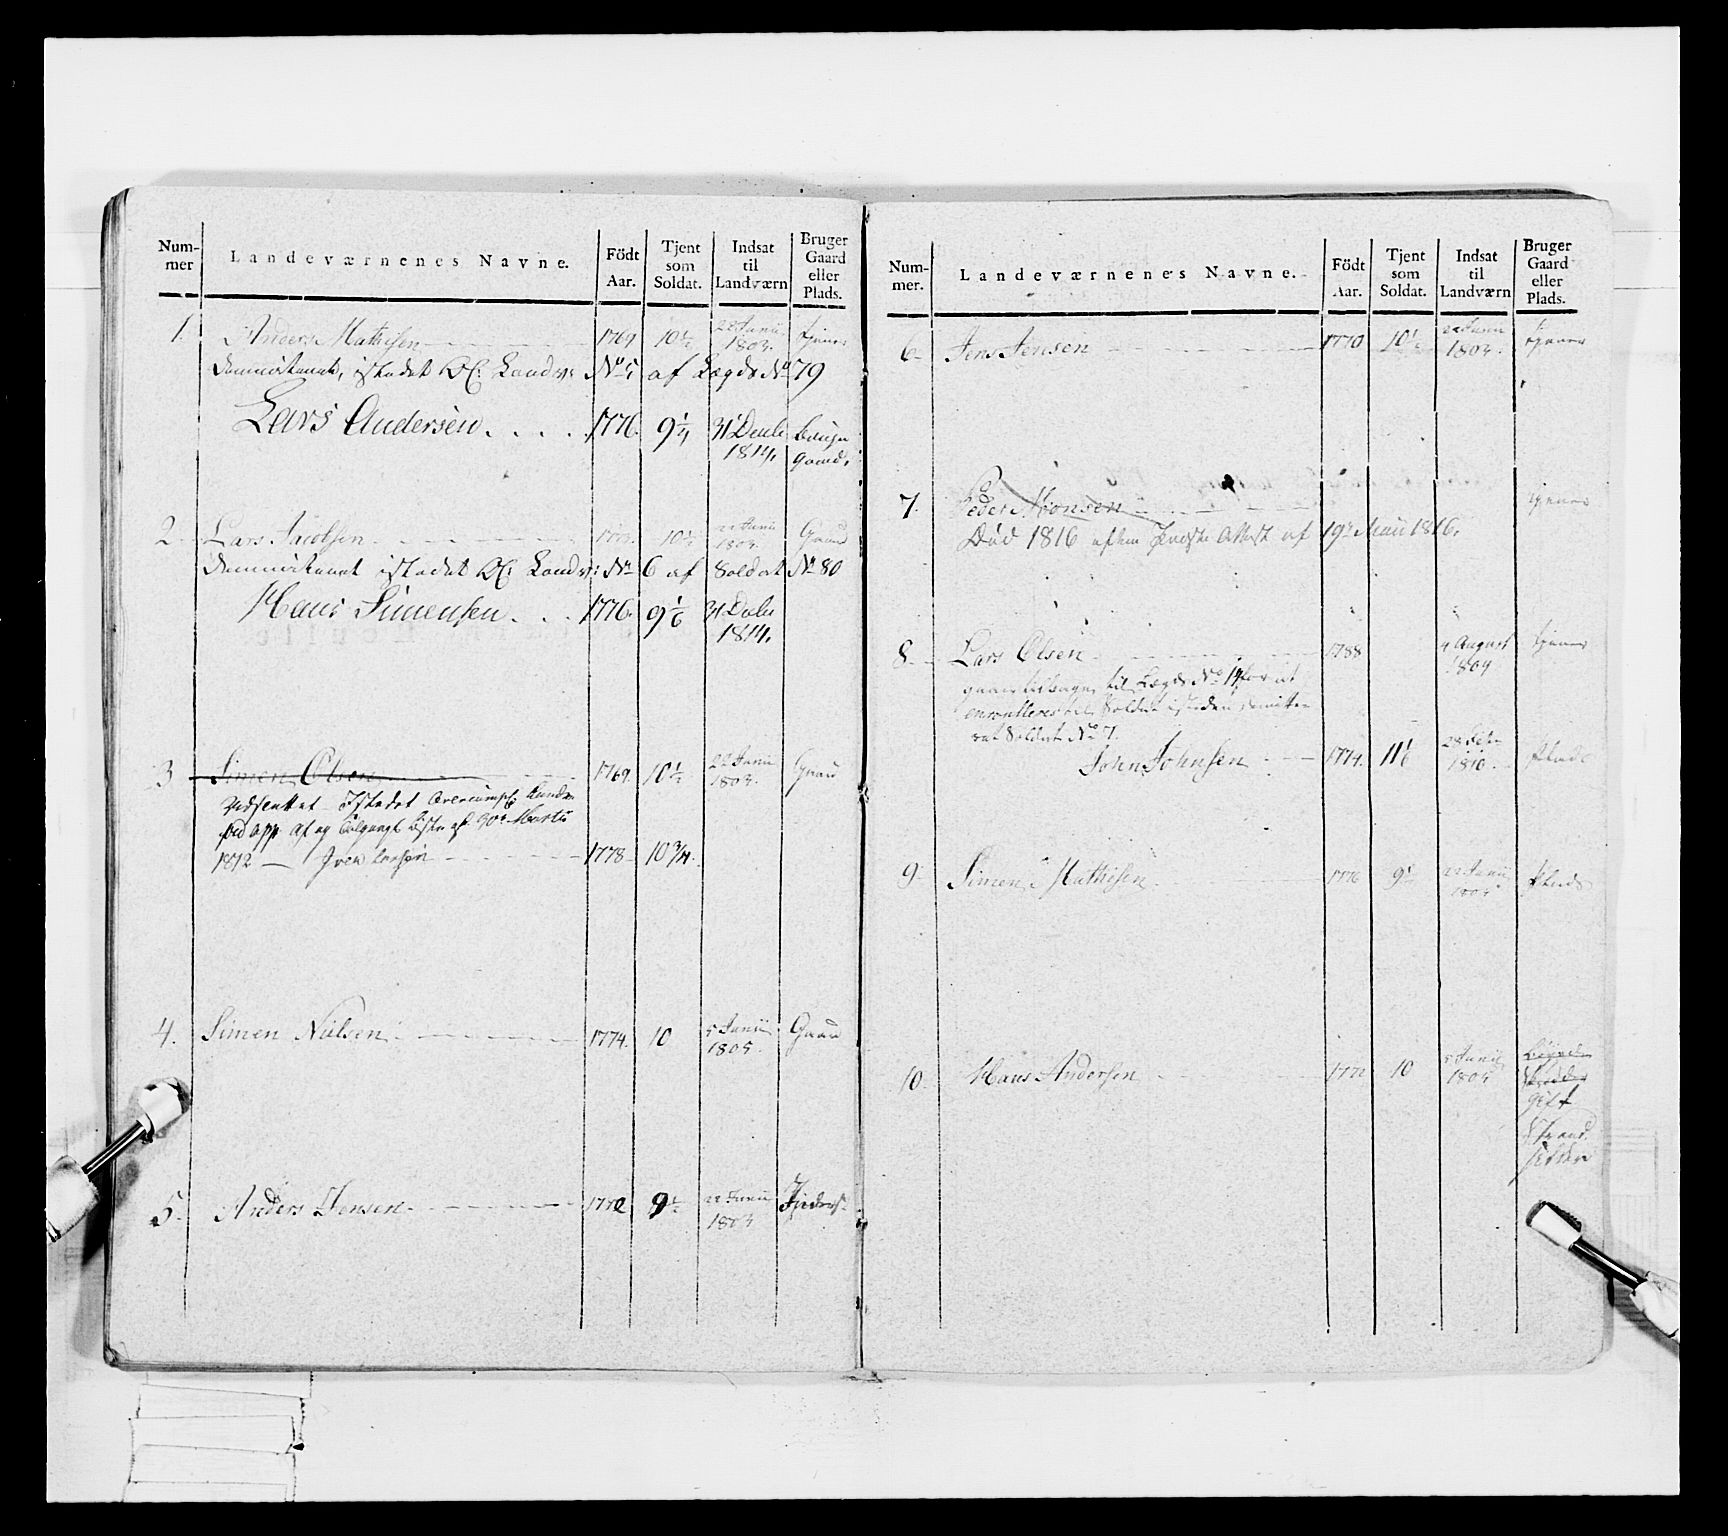 Num-
mer
Landeværnenes Navne.
Födt
Aar.
Tjent
som
Soldat.
Indsat
til
Landværn
Bruger
Gaard
eller
Plads.
1. Anders Mathisen 1769 10½ 22 Junii 1803. tjener
istedet Landv: No 5 af Lægds No 79
Lars Andersen. 1776. 9¼ 31 Decbr 1814. bruger Gaard.
2. Lars Jacobsen 10½ 22 Junii 1803. Gaard
istedet Landv: No 6 af Soldat No 80
Hans Simensen. 1776. 9 31 Decbr 1814.
3 Simen Olsen 1769. 10½ 22 Junii 1803. Gaard
Udslettet Istedet
ved app. af og Tilgangs Liste af 30te Martii
1812 — Iver Larsen 1778 10¾.
4. Simen Nielsen 1774. 10 5 Junii 1805. Gaard
5. Anders Jensen 1772 9½ 22 Junii 1803
Num-
mer.
Landeværnenes Navne.
Födt
Aar.
Tjent
som
Soldat.
Indsat
til
Landværn
Bruger
Gaard
eller
Plads.
6. Jens Jensen 1770 10½ 22 Junii 1803. tjener
7. Peder tjener
Död 1816 efter Præste Attest af 19de Maii 1816.
8. Lars Olsen 1788 4 August 1809 tjener
gaaer tilbage til Lægds No 19 for at
enroulleres til Soldat isteden demitte-
ret Soldat No 7.
John Johnsen 1774. 11 28 Febr 1810. Plads
9. Simen Mathisen 1776 9½ 22 Junii Plads
10. Hans Andersen 1772 10 5 Junii 1805
gift
Strand
sidder